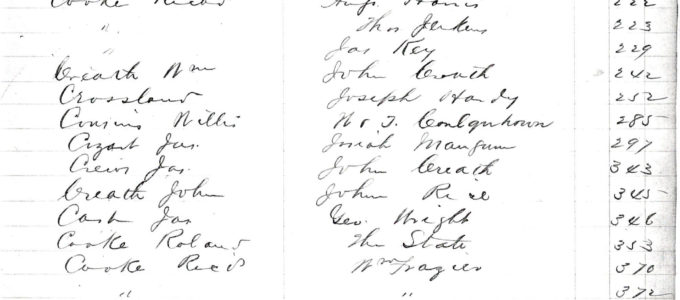 Cooke Reese 222
" Thos Jenkins 223
" Jas Key 229
Creath Wm John Creath 242
Crossland Joseph Handy 252
Cousins Willis W & J 285
Jas. Josiah Mangum 297
Crews Jas. John Creath 343
Creath John John 345
Cash Jas Geo. Wright 346
Cooke Roland The State 353
Cooke Wm Frazier 370
" " 372